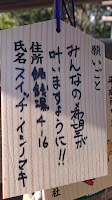 願いごと
みんなの希望が
叶いますように!!
住所 銚銭場4-16
氏名 スイッチ・イシノマキ
社